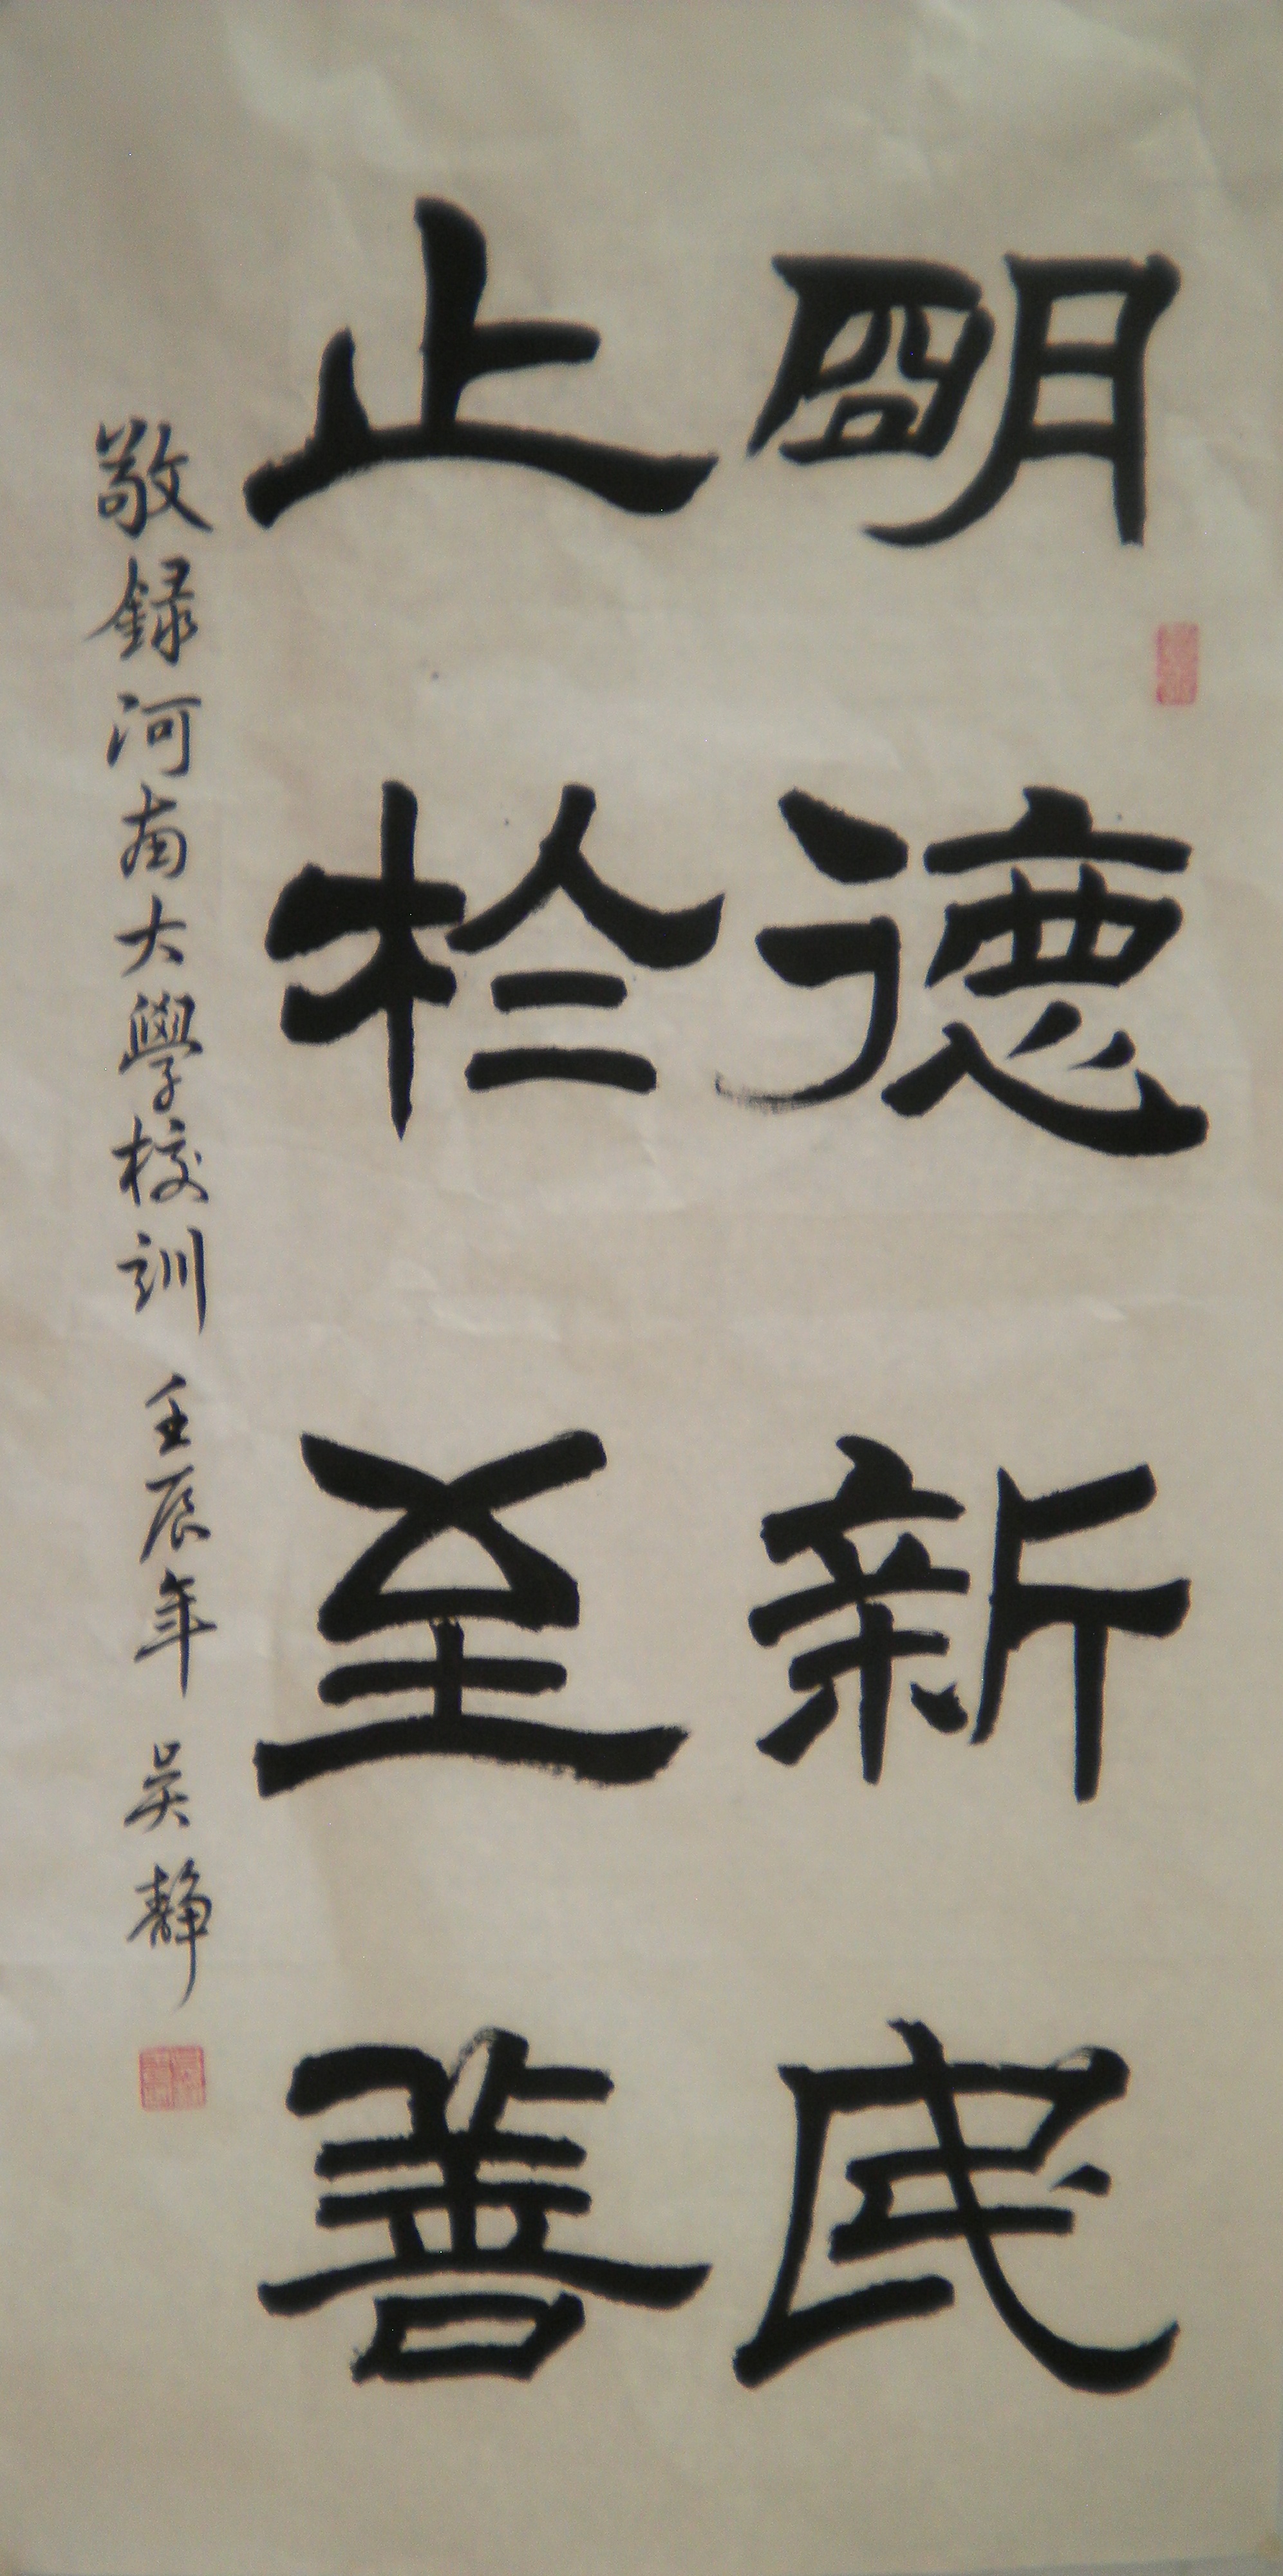 明德新民
止於至善
敬録河南大學校訓 壬辰年 吴静